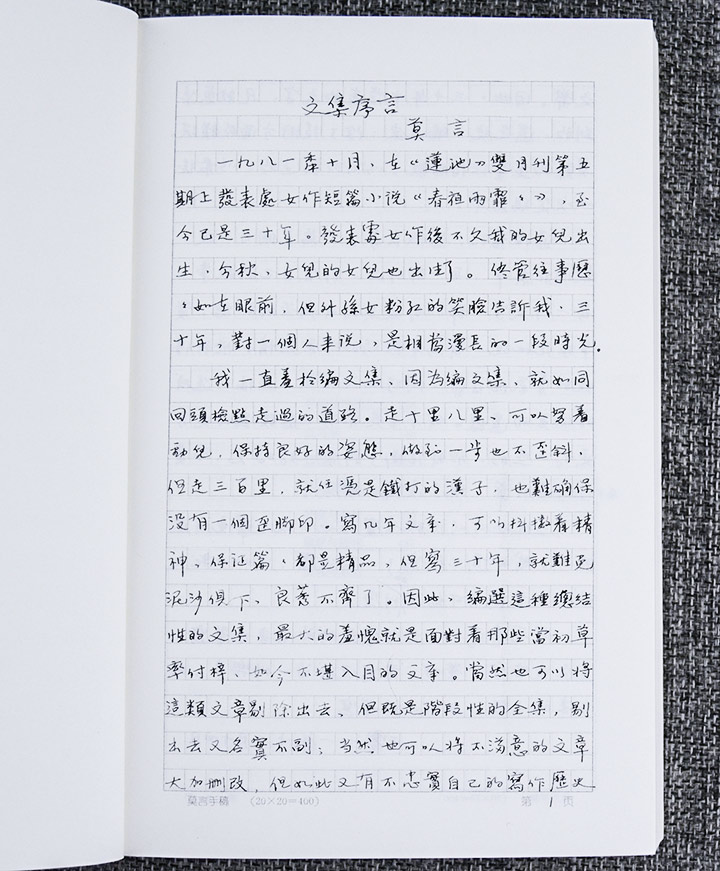 文集序言
莫言
一九八一年十月，在《蓮池》雙月刊第五
期上發表處女作短篇小说《春夜雨霏〻》，至
今已是三十年。發表處女作後不久我的女兒出
生，今秋，女兒的女兒也出生了。儘管往事歷
〻如在眼前，但外孫女粉红的笑臉告訴我，三
十年，對一個人来说，是相當漫長的一段時光。
我一直羞於編文集，因為編文集，就如同
回頭檢點走過的道路。走十里八里，可以努着
勁兒，保持良好的姿態，做到一步也不歪斜，
但走三百里，就任憑是鐵打的漢子，也難确保
没有一個歪脚印。寫几年文章，可以抖擻着精
神，保证篇〻都是精品，但寫三十年，就難免
泥沙俱下，良莠不齊了。因此，編選這種總結
性的文集，最大的羞愧就是面對着那些當初草
率付梓，如今不堪入目的文章。當然也可以將
這類文章剔除出去，但既是階段性的全集，剔
出去又名實不副；當然也可以将不满意的文章
大加删改，但如此又有不忠實自己的寫作歷史
莫言手稿 （20×20=400） 第 1 页